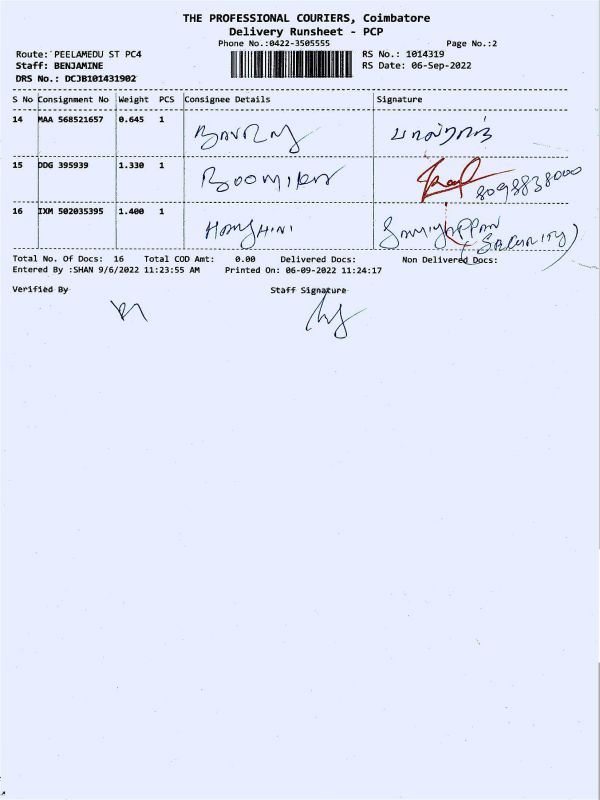 THE PROFESSIONAL COURIERS, Coimbatore
Delivery Runsheet - PCP
Phone No.:0422-3505555 Page No.:2
Route: PEELAMEDU ST PC4 RS No.: 1014319
Staff: BENJAMINE RS Date: 06-Sep-2022
DRS No.: DCJB101431902
S No Consignment No Weight PCS Consignee Details Signature
14 MAA 568521657 0.645 1
15 DDG 395939 1.330 1 8098838000
16 IXM 502035395 1.400 1 HARSHINI SAMIYAPPAN
(SECURITY)
Total No. Of Docs: 16 Total COD Amt: 0.00 Delivered Docs: Non Delivered Docs:
Entered By :SHAN 9/6/2022 11:23:55 AM Printed On: 06-09-2022 11:24:17
Verified By Staff Signature